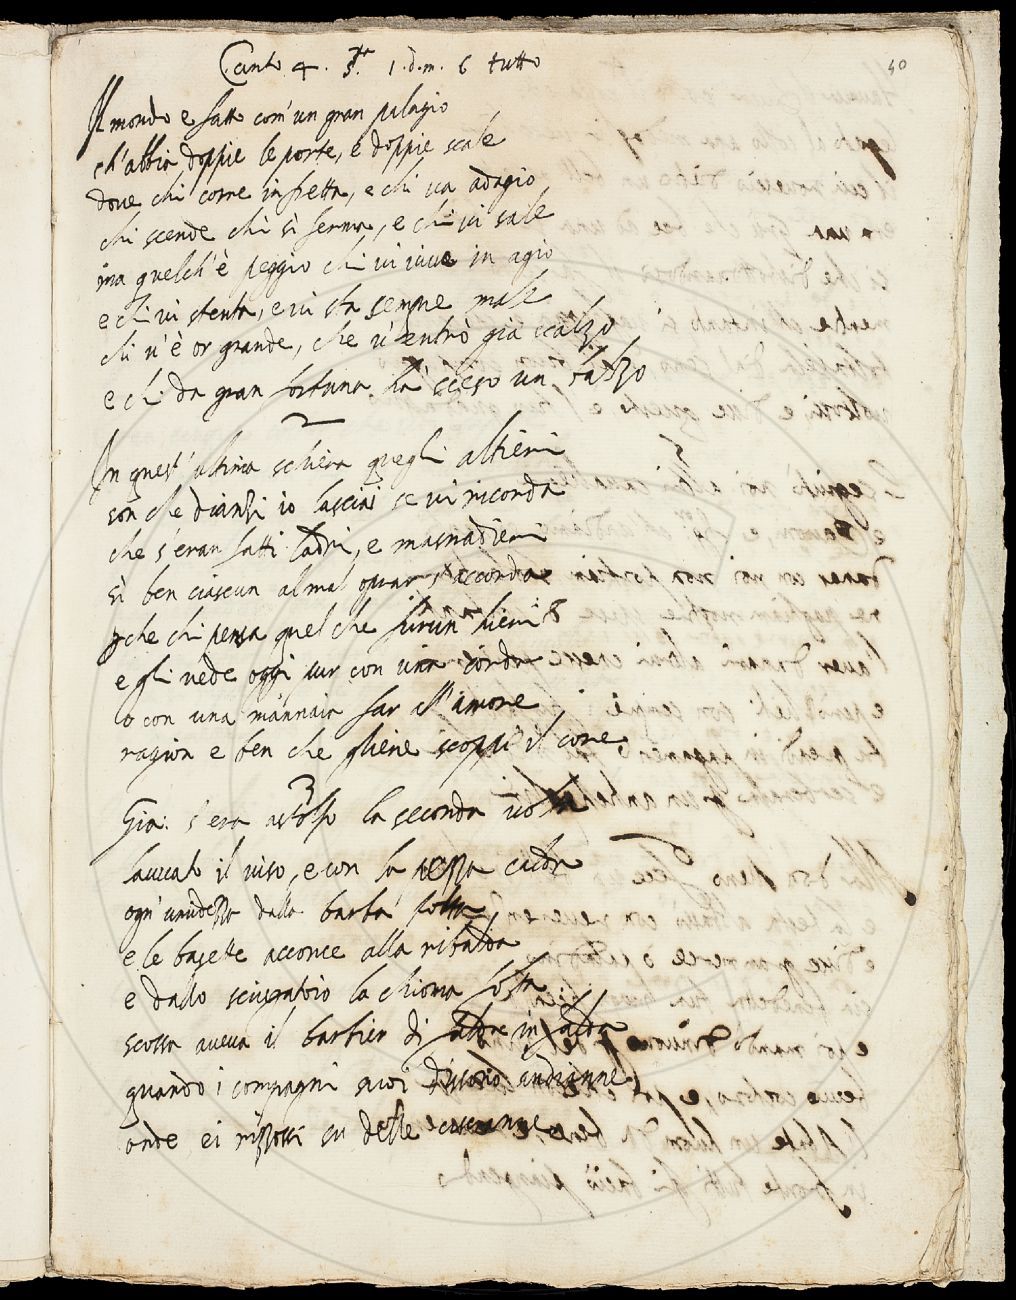 Canto 4. 5.te 1. d. m. 6 tutto
40
Il mondo e fatto com' un gran palagio
ch' abbia doppie le porte, e doppie scale
doue chi corre in fretta, e chi ua adagio
chi scende chi si ferma, e chi ui sale
ma quelch' è peggio chi ui uiue in agio
e chi ui stenta, e ui sta sempre male
chi u' è or grande, che u' entrò già scalzo
e chi da gran fortuna ha sceso un balzo
2
In quest' ultima schiera quegli altieri
son che dianzi io lasciai se ui ricorda
che s' eran fatti ladri, e masnadieri
sì ben ciascun al mal oprar s' accorda
che chi pensa quel che furun hieri
e gli uede oggi con una corda
o con una mannaia far all' amore
ragion e ben che gliene scoppi il core
3
Gia s' era astolfo la seconda uolta
lauato il uiso, e con la pezza calda
ogn' umidezza dalla barba tolta
e le basette acconce alla ribalda
e dallo sciugatoio la chioma folta
scossa aueua il barbier di in
quando i compagni suoi
onde ei rizzossi su delle